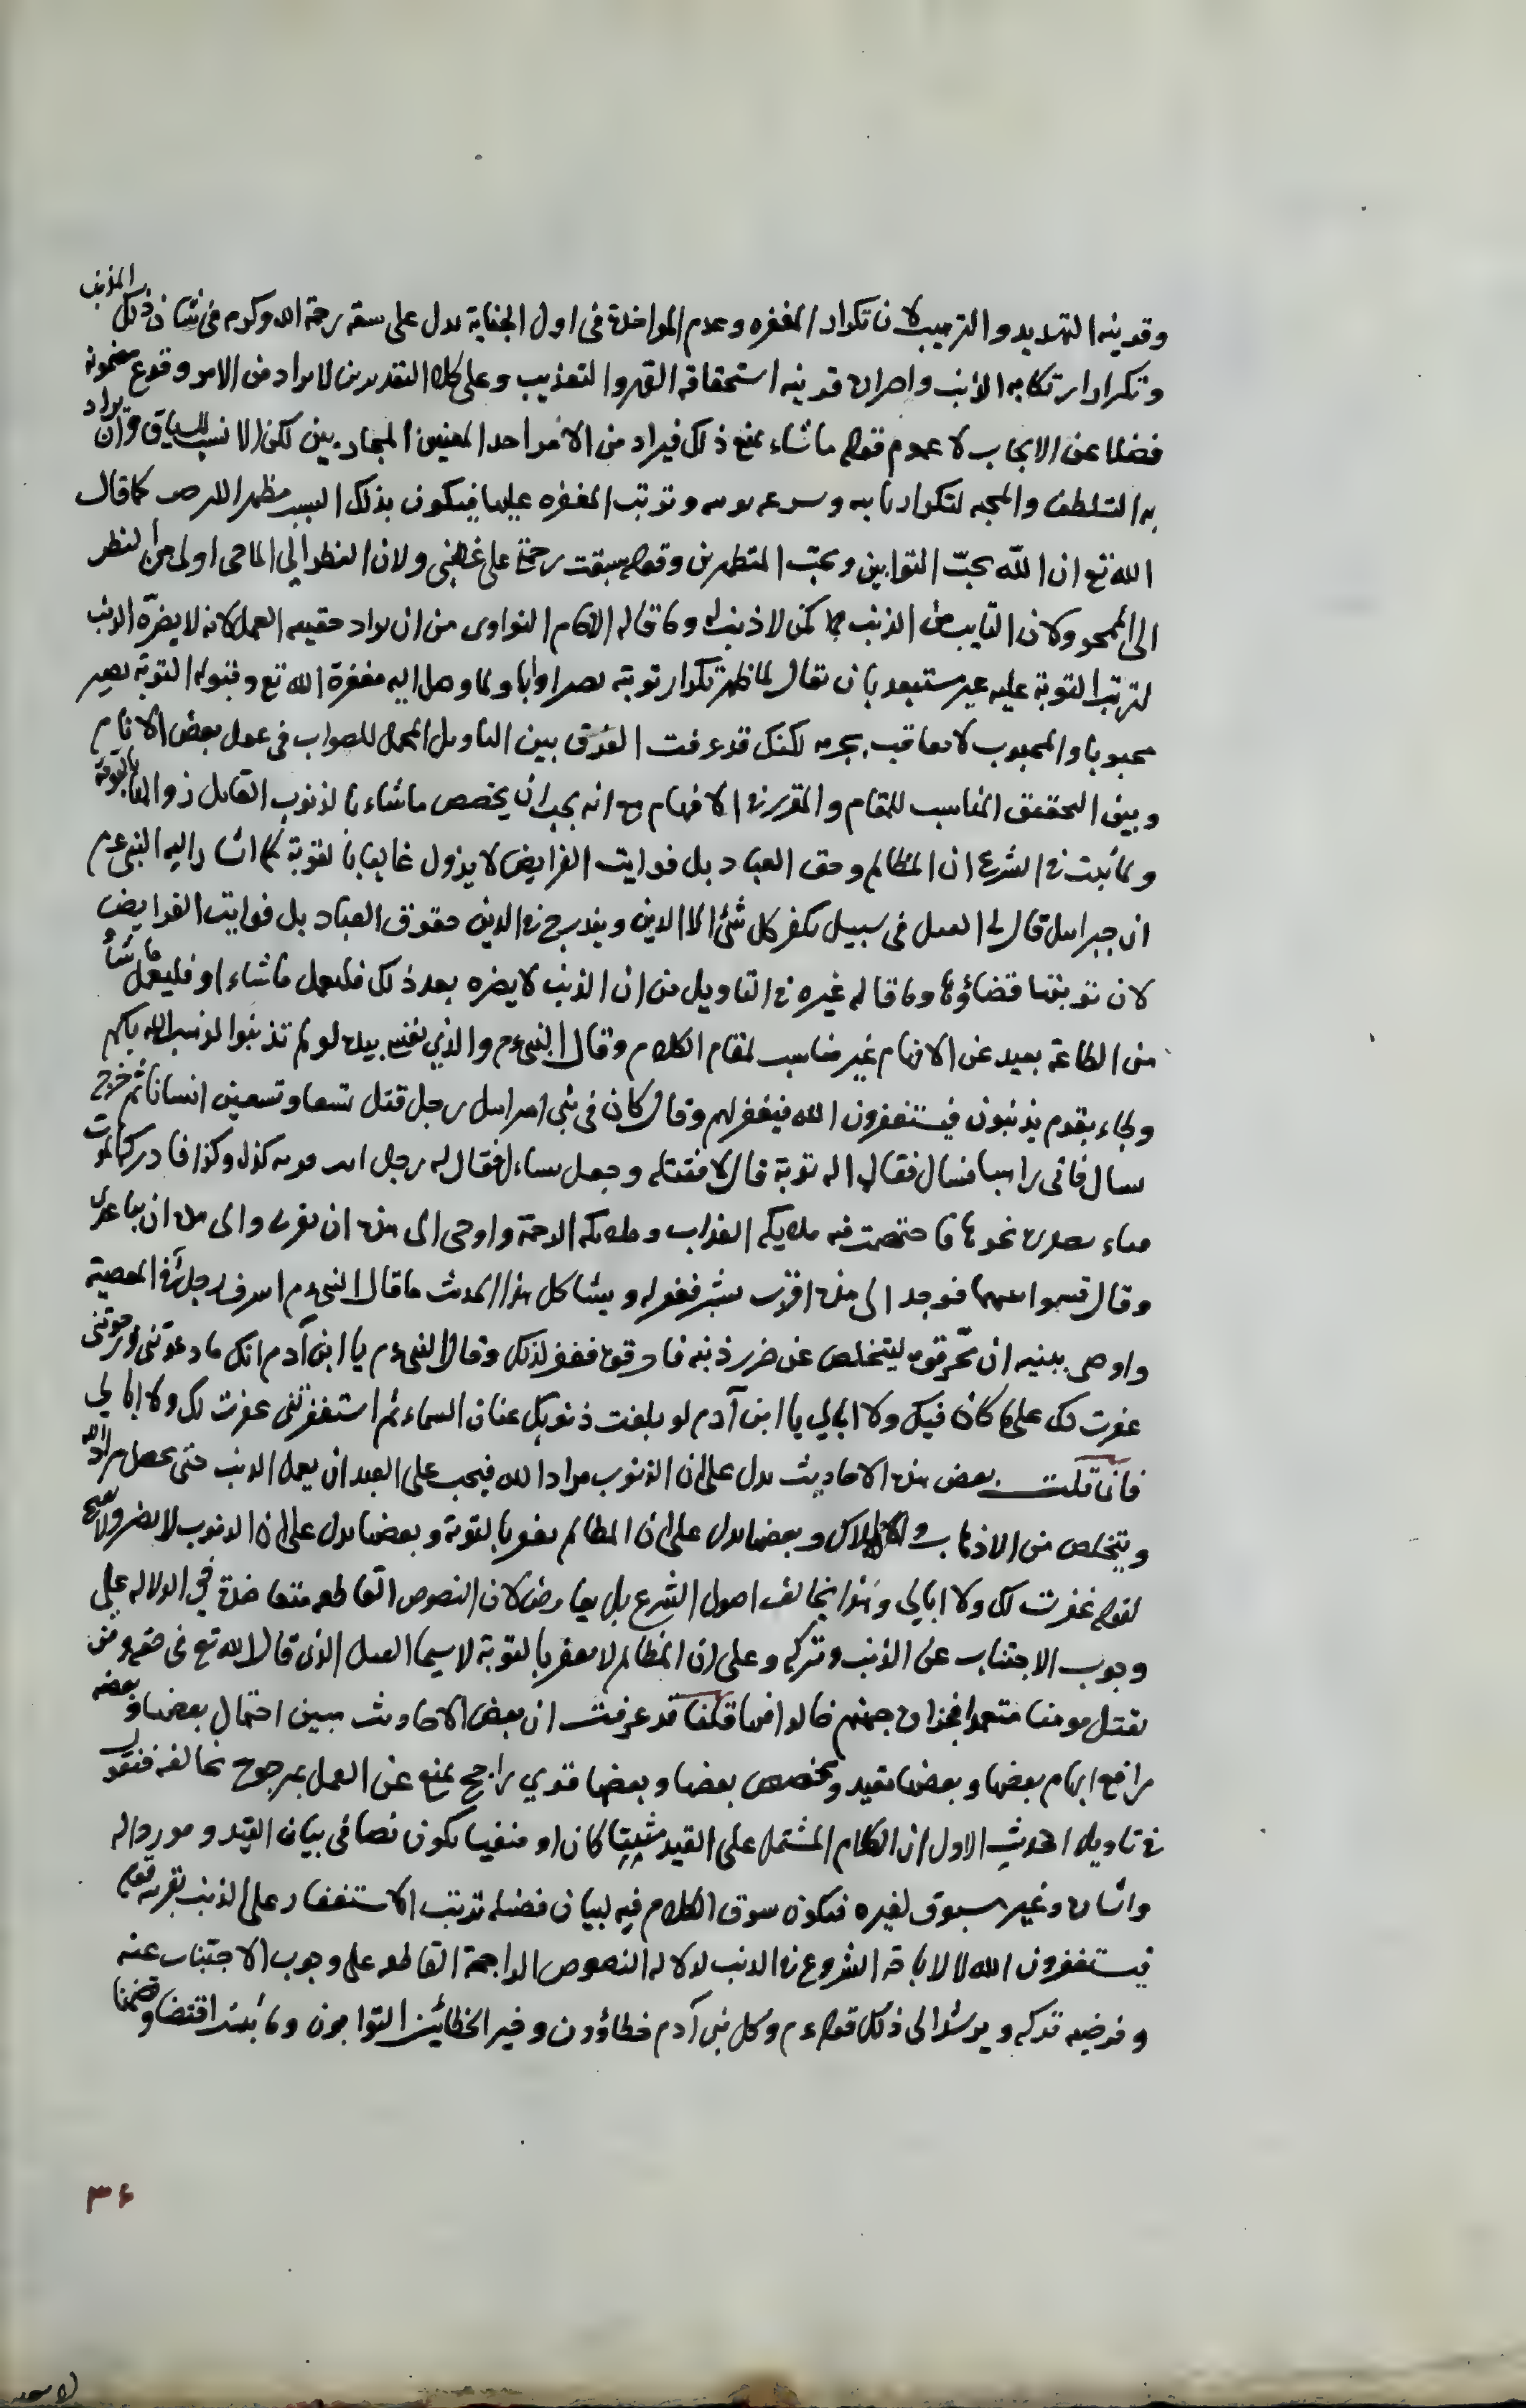 وقرينه التهديد والترهيب لان تكرار المغفره وعدم المواخذة في اول الجناية يدل على سعة رحمة الله وكرمه في شان ذلك المذنب
وتكرار ارتكابه الذنب واصراره قرينه استحقاقه القهر والتعذيب وعلى كلا التقديرين لا يراد من الامر وقوع مضمونه
فضلا عن الايجاب لا عموم قوله ما شاء يمنع ذلك فيراد من الامر احد المعنيين المجازيين لكن الانسب للسياق وان يراد
به التلطف والمحبه لتكرار وترتب المغفره عليها فيكون بذلك كما قال
الله تع ان الله يحبّ التوابين ويحبّ المتطهرين وقوله سبقت رحمتي على غضبي ولان النظر الى الماحي اولى من النظر
الى الممحو ولان التايب من الذنب كمن لا ذنب له وما قاله الامام النواوى من ان يراد حقيقه العمل لانه لا يضرّه الذنب
لترتب التوبة عليه غير مستبعد بان يقال لما ظهر بتكرار توبته اوابا ولما وصل اليه مغفرة الله تع وقبوله التوبة يصير
محبوبا والمحبوب لا يعاقب بجرمه لكنك قد عرفت الفرق بين التاويل المحمل للصواب في عمل بعض الانام
وبين التحقيق المناسب للمقام والمقرر في الافهام مع انه يجب ان يخصص ما شاء بالذنوب القابل زوالها بالتوبة
ولما ثبت في الشرع ان المظالم وحق العباد بل فوايت الفرايض لا يزول غالبا بالتوبة كما اشار اليه النبي عم
ان جبرايل قال لي القتل في سبيل يكفر كل شئ الا الدين ويندرج في الدين حقوق العباد بل فوايت الفرايض
لان توبتها قضاؤها وما قاله غيره في التاويل من ان الذنب لا يضره بعد ذلك فليعمل ما شاء او فليعمل ما شاء
من الطاعة بعيد عن الافهام غير مناسب لمقام الكلام وقال النبي عم والذي نفسي بيده لو لم تذنبوا لذهب الله بكم
ولجاء بقوم يذنبون فيستغفرون الله فيغفر لهم وقال كان في بني اسرايل رجل قتل تسعا وتسعين انسانا ثم خرج
يسال فاتى راهبا فسال فقال اله توبة قال لا فقتله وجعل يساءل فقال له رجل ايت قريه كذا وكذا فادركه الموت
فناء بصدره نحوها فاختصمت فيه ملايكه العذاب وملايكه الرحمة واوحى الى هذه ان تقربى والى هذه ان تباعدى
وقال قيسوا بينهما فوجد الى هذه اقرب بشبر فغفر له ويشاكل هذا الحديث ما قال النبي عم اسرف رجل في المعصية
واوصى ببنيه ان يحرّقوه ليتخلص عن ضرر ذنبه فاحرقوه فغفر لذلك وقال النبي عم يا ابن آدم انك ما دعوتني ورجوتني
غفرت لك على ما كان فيك ولا ابالي يا ابن آدم لو بلغت ذنوبك عنان السماء ثم استغفرتني غفرت لك ولا ابالي
فان قلت بعض هذه الاحاديث يدل على ان الذنوب مراد الله فيجب على العبد ان يعمل الذنب حتى يحصل مراد الله
ويتخلص من الاذهاب والاهلاك وبعضها يدل على ان المظالم يغفر بالتوبة وبعضها يدل على ان الذنوب لا يضر
لقوله غفرت لك ولا ابالي وهذا يخالف اصول الشرع بل يعارض لان النصوص القاطعه متعاضدة في الدلاله على
وجوب الاجتناب عن الذنب وتركه وعلى ان المظالم لا يغفر بالتوبة لا سيما القتل الذي قال الله تع في حقه ومن
يقتل مومنا متعمدا فجزاؤه جهنم خالدا فيها قلنا قد عرفت ان بعض الاحاديث مبين احتمال بعضها وبعضه
رافع ابهام بعضها وبعضها مقيد ومخصص بعضها وبعضها قوي راجح يمنع عن العمل بمرجوح يخالفه فنقول
في تاويل الحديث الاول ان الكلام المشتمل على القيد مثبتا كان او منفيا يكون نصا في بيان القيد ومورد اله
واشاره وغير مسبوق لغيره فيكون سوق الكلام فيه لبيان فضله ترتب الاستغفار على الذنب بقرينه قوله
فيستغفرون الله لا لاباحة الشروع في الذنب لدلاله النصوص الراجحة القاطعه على وجوب الاجتناب عنه
وفرضيه تركه ويرشد الى ذلك قوله عم وكل بني آدم خطاؤون وخير الخطائين التوابون وما ثبت اقتضاء وضمنا
۳۶